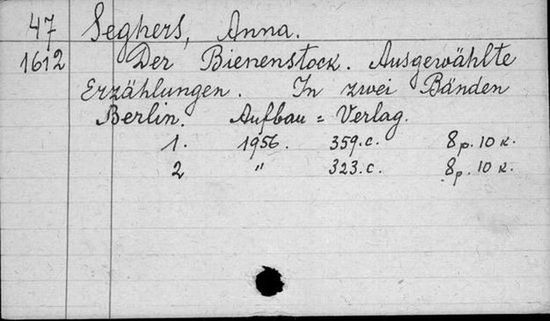 47 Seghers, Anna.
1612 Der Bienenstock. Ausgewählte
Erzählungen. In zwei Bänden
Berlin. Aufbau = Verlag.
1. 1956. 359.c. 8p.10к.
2 " 323.c. 8p.10к.